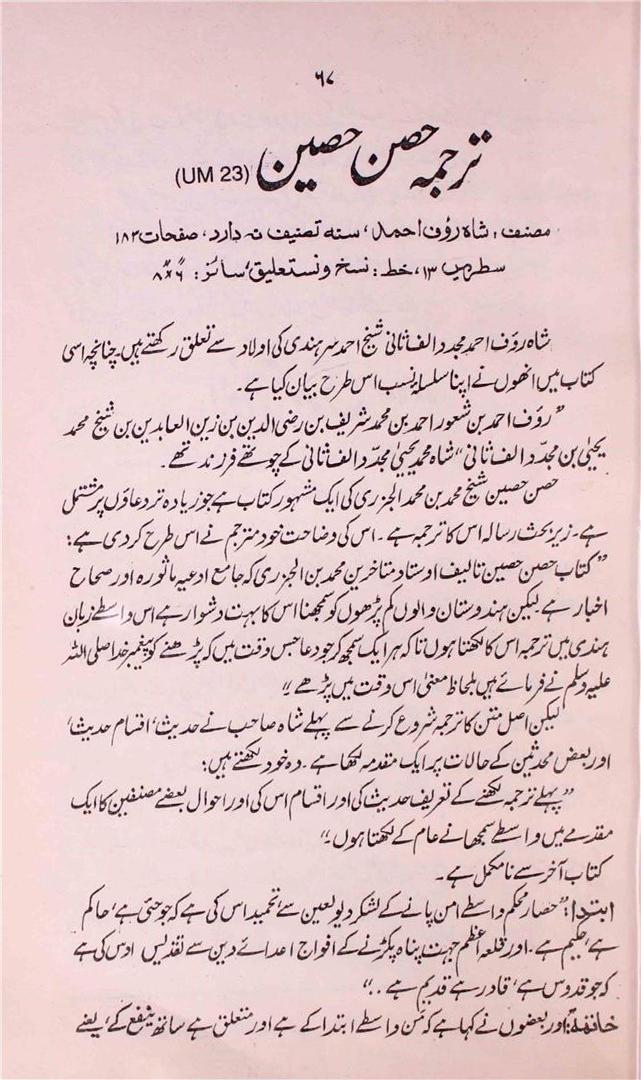 ۶۷
ترجمہ حصن حصین (UM 23)
مصنف: شاہ رؤف احمد، سنہ تصنیف ندارد، صفحات ۱۸۲
سطریں ۱۳، خط: نسخ و نستعلیق، سائز: ۶×۸
شاہ رؤف احمد مجدد الف ثانی شیخ احمد سرہندی کی اولاد سے تعلق رکھتے ہیں۔ چنانچہ اسی
کتاب میں انھوں نے اپنا سلسلہ نسب اس طرح بیان کیا ہے۔
”رؤف احمد بن شعور احمد بن محمد شریف بن رضی الدین بن زین العابدین بن شیخ محمد
یحییٰ بن مجدّد الف ثانی“ شاہ محمد یحییٰ مجدّد الف ثانی کے چوتھے فرزند تھے۔
حصن حصین شیخ محمد بن محمد الجزری کی ایک مشہور کتاب ہے جو زیادہ تر دعاؤں پر مشتمل
ہے۔ زیر بحث رسالہ اس کا ترجمہ ہے۔ اس کی وضاحت خود مترجم نے اس طرح کر دی ہے:
”کتاب حصن حصین تالیف اوستاد متاخرین محمد بن الجزری کہ جامع ادعیہ ماثورہ اور صحاح
اخبار ہے لیکن ہندوستان والوں کم پڑھوں کو سمجھنا اس کا بہت دشوار ہے اس واسطے زبان
ہندی میں ترجمہ اس کا لکھتا ہوں تاکہ ہر ایک سمجھ کر جو دعا جس وقت میں کہ پڑھنے کو پیغمبر خدا صلی اللہ
علیہ وسلم نے فرمائے ہیں بلحاظ معنیٰ اس وقت میں پڑھے۔“
لیکن اصل متن کا ترجمہ شروع کرنے سے پہلے شاہ صاحب نے حدیث، اقسام حدیث،
اور بعض محدثین کے حالات پر ایک مقدمہ لکھا ہے۔ وہ خود لکھتے ہیں:
”پہلے ترجمہ لکھنے کے تعریف حدیث کی اور اقسام اس کی اور احوال بعضے مصنفین کا ایک
مقدمے میں واسطے سمجھانے عام کے لکھتا ہوں۔“
کتاب آخر سے نامکمل ہے۔
ابتدا: ”حصار محکم واسطے امن پانے کے لشکر دیو لعین سے تحمید اس کی ہے کہ جو حئی ہے، حاکم
ہے، حکیم ہے۔ اور قلعہ اعظم جہت پناہ پکڑنے کے افواج اعدائے دین سے تقدیس اوس کی ہے
کہ جو قدوس ہے، قادر ہے قدیم ہے ..“
خاتمہ: اور بعضوں نے کہا ہے کہ مَن واسطے ابتدا کے ہے اور متعلق ہے ساتھ ینفع کے، یعنے